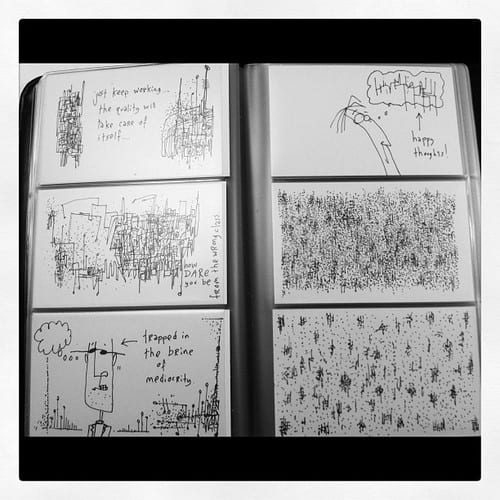 just keep working...
the quality will
take care of
itself...
how
DARE
you be
from the wrong class.
← trapped in
the brine
of
mediocrity
happy
thoughts!